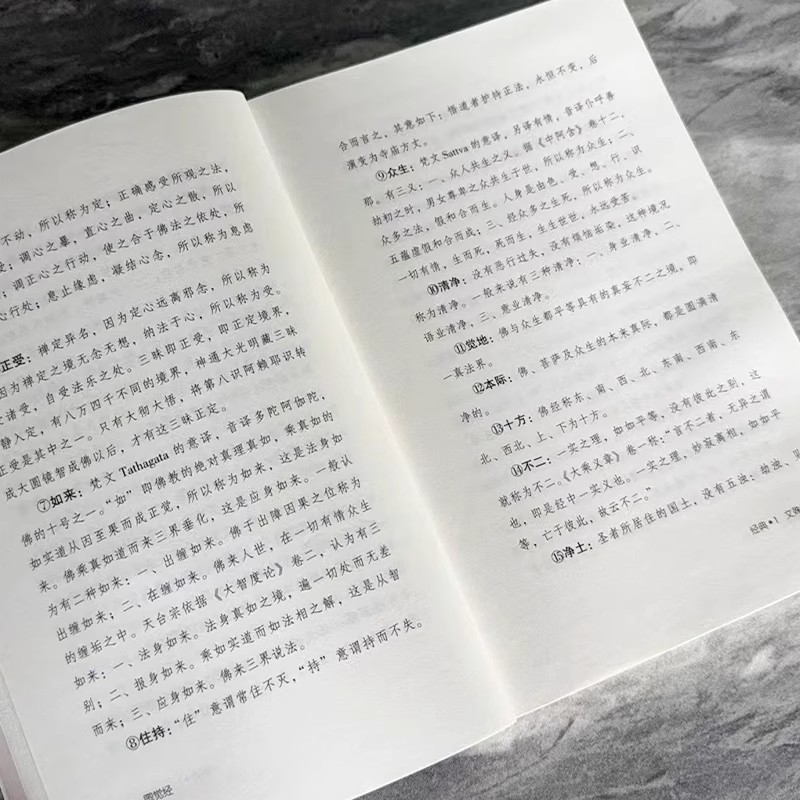 不动，所以称为定；正确感受所观之法，
；调心之暴，直心之曲，定心之散，所以
；调正心之行动，使之合于佛法之依处，所
心行处；息止缘虑，凝结心念，所以称为息虑
正受：禅定异名，因为定心远离邪念，所以称为
因为禅定之境无念无想，纳法于心，所以称为受。
诸受，自受法乐之处。三昧即正受，即正定境界，
静入定，有八万四千不同的境界，神通大光明藏三昧
正受是其中之一。只有大彻大悟，将第八识阿赖耶识转
成大圆镜智成佛以后，才有这三昧正定。
⑦如来：梵文 Tathagata 的意译，音译多陀阿伽陀，
佛的十号之一。“如”即佛教的绝对真理真如，乘真如的
如实道从因至果而成正觉，所以称为如来，这是法身如
来。佛乘真如道而来三界垂化，这是应身如来。一般认
为有二种如来：一、出缠如来。佛于出障因果之位称为
出缠如来；二、在缠如来。佛来人世，在一切有情众生
的缠垢之中。天台宗依据《大智度论》卷二，认为有三
如来：一、法身如来。法身真如之境，遍一切处而无差
别；二、报身如来。乘如实道而如法相之解，这是从智
而来；三、应身如来。佛来三界说法。
⑧住持：“住”意谓常住不灭，“持”意谓持而不失。
圆觉经
合而言之，其意如下：悟道者护持正法，永恒不变，后
演变为寺庙方丈。
⑨众生：梵文 Sattva 的意译，另译有情，音译仆呼善
耶。有三义：一、众人共生之义。据《中阿含》卷十二，
劫初之时，男女尊卑之众共生于世，所以称为众生；二、
众多之法，假和合而生。人身是由色、受、想、行、识
五蕴虚假和合而成；三、经众多之生死，所以称为众生。
一切有情，生而死，死而生，生生世世，永远受苦。
⑩清净：没有恶行过失，没有烦恼垢染，这种境况
称为清净。一般来说有三种清净：一、身业清净，二、
语业清净，三、意业清净。
⑪觉地：佛与众生都平等具有的真妄不二之境。即
一真法界。
⑫本际：佛、菩萨及众生的本来真际，都是圆满清
净的。
⑬十方：佛经称东、南、西、北、东南、西南、东
北、西北、上、下为十方。
⑭不二：一实之理，如如平等，没有彼此之别，这
就称为不二。《大乘义章》卷一称：“言不二者，无异之谓
也，即是经中一实义也。一实之理，妙寂离相，如如平
等，亡于彼此，故云不二。”
⑮净土：圣者所居住的国土，没有五浊：劫浊、见
经典•1